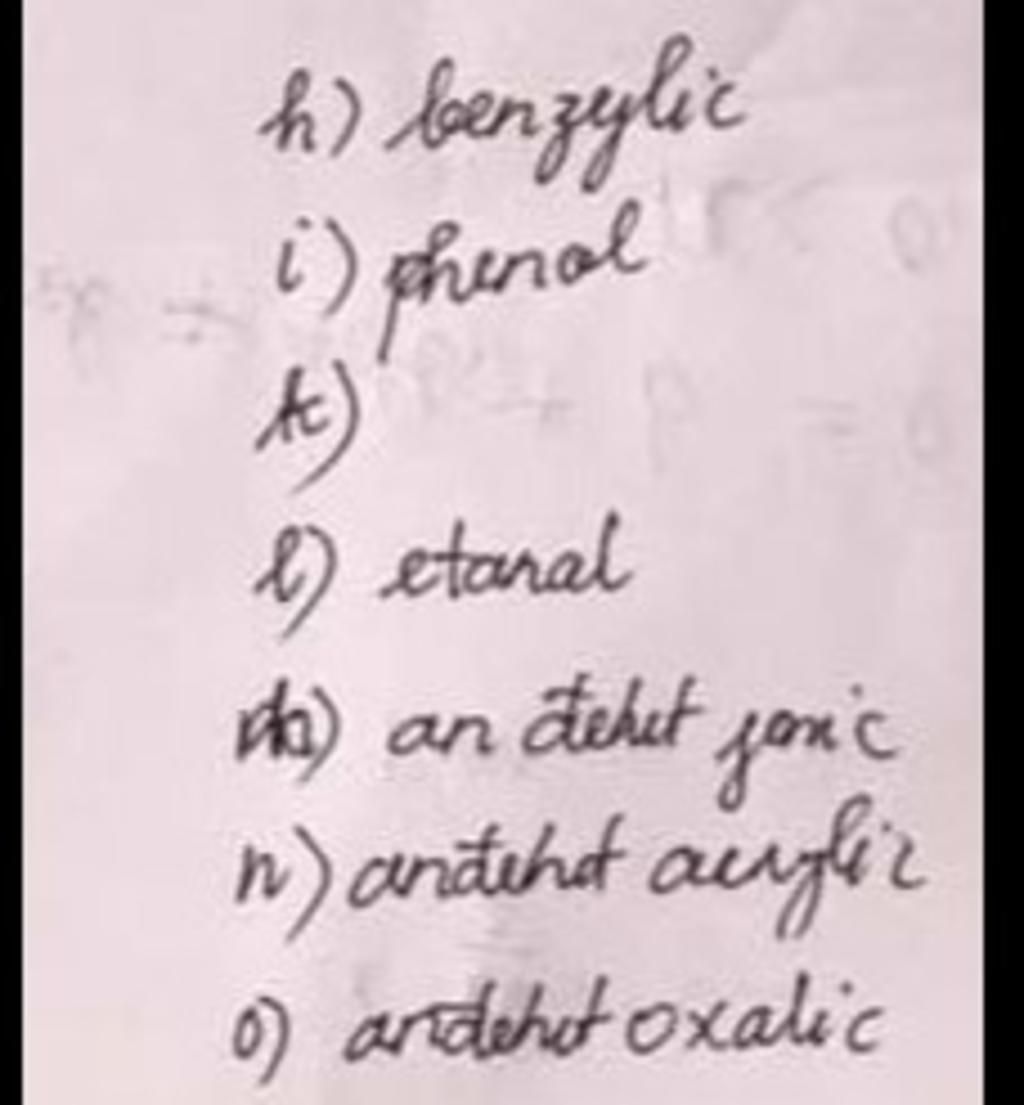 h) benzylic
i) phenol
k)
l) etanal
m) an đehit fomic
n) anđehit acrylic
o) anđehit oxalic